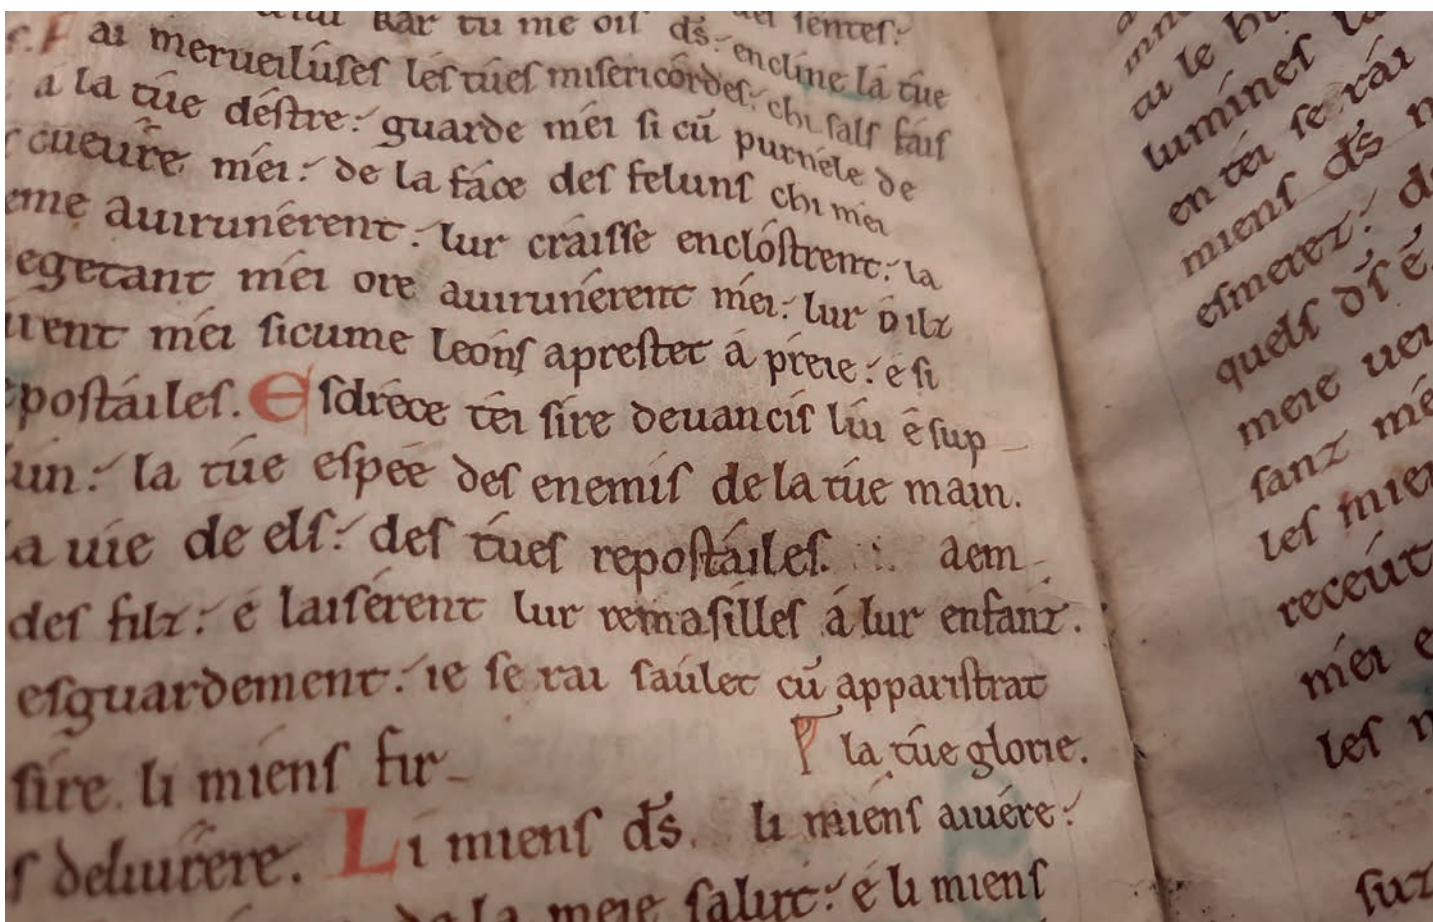 Kar tu me oiſ dſ̄: encline la túe
F ai merueiluſeſ leſ túeſ miſericórdeſ: chi ſalf faiſ
á la túe déſtre: guarde méi ſi cū purnéle de
cueuŕe méi: de la fáce deſ felunſ chi méi
eme auirunérent: lur cráiſſe encloſtrent: la
egetant méi ore auirunérent méi: lur oilz
irent méi ſicume leónſ apreſtet á préie: é ſi
poſtáileſ. Eſdréce téi ſire deuanciſ liu é ſup
un: la túe eſpée deſ enemiſ de la túe main.
a uie de elſ: deſ túeſ repoſtáileſ. aem
deſ filz: é laiſérent lur remaſilleſ á lur enfanz.
eſguardement: ie ſe rai ſaúlet cū appariſtrat
la túe glorie.
ſire li mienſ fir-
ſ deliuŕere. Li mienſ dſ̄. li mienſ aiuére:
de la meie ſalut: é li mienſ
ai le
lumineſ
en téi ſe rái
mienſ dſ̄
eſmeret:
quelſ dſ̄ ē
meie uei
ſanz mé
leſ mien
receút
méi e
leſ